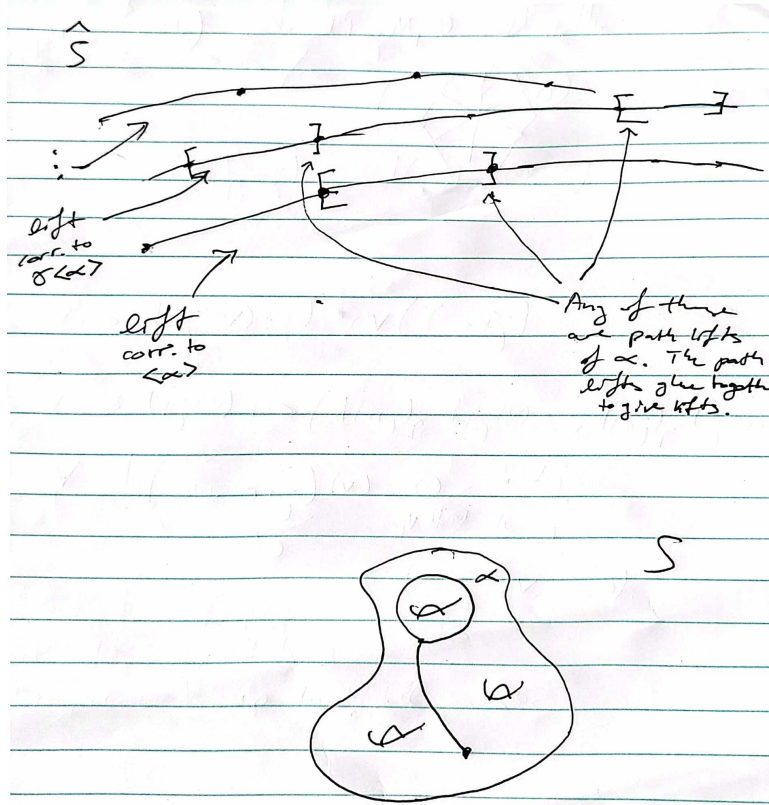 Ŝ
:
lift
corr. to
γ<α>
lift
corr. to
<α>
Any of these
are path lifts
of α. The path
lifts glue together
to give lifts.
S
α